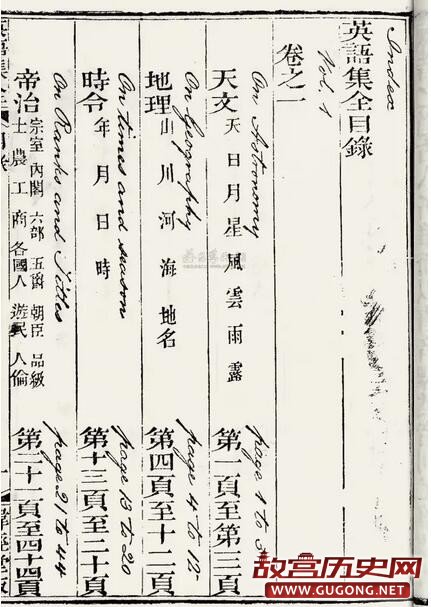 Index
英語集全目錄
Vol. 1
卷之一
On Astronomy page 1 to 3
天文 天日月星風雲雨露 第一頁至第三頁
On Geography page 4 to 12
地理 山川河海地名 第四頁至十二頁
On times and season page 13 to 20
時令 年月日時 第十三頁至二十頁
On Ranks and Titles page 21 to 44
帝治 宗室 內閣 六部 五爵 朝臣 品級
士農工商各國人 遊民 人倫 第二十一頁至四十四頁
英語集全
目錄
故宫历史网
GUGONG.NET